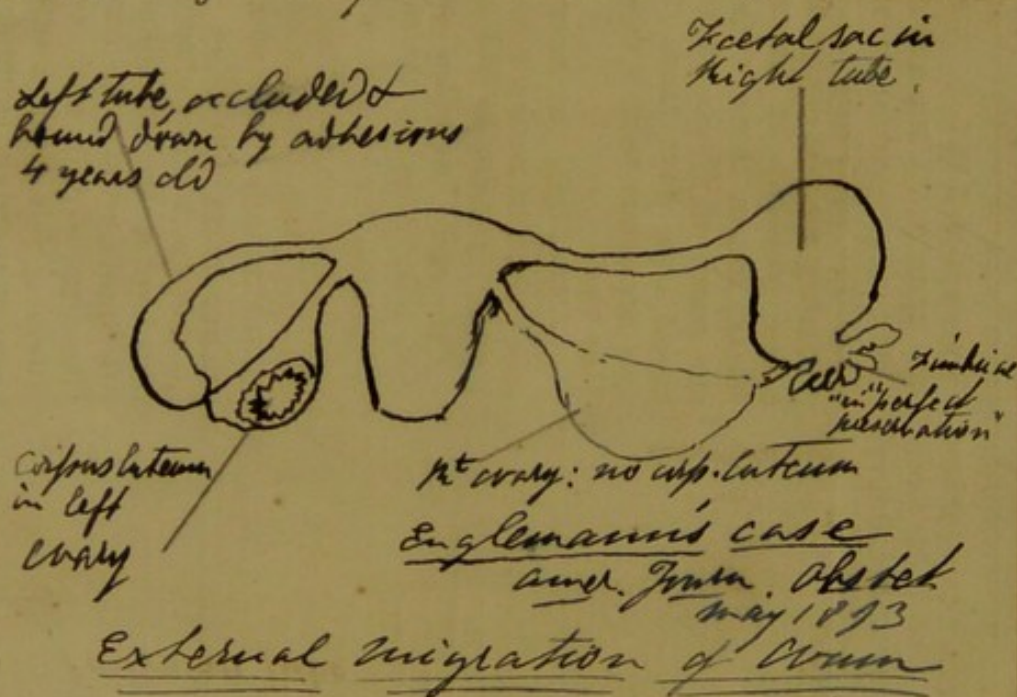 Left tube, occluded &
bound down by adhesions
4 years old
Foetal sac in
Right tube.
Fimbriae
"in perfect
preservation"
Corpus luteum
in left
ovary
Rt ovary: no corp. luteum
Englemann's case
Amer. Journ. Obstet
May 1893
External migration of ovum